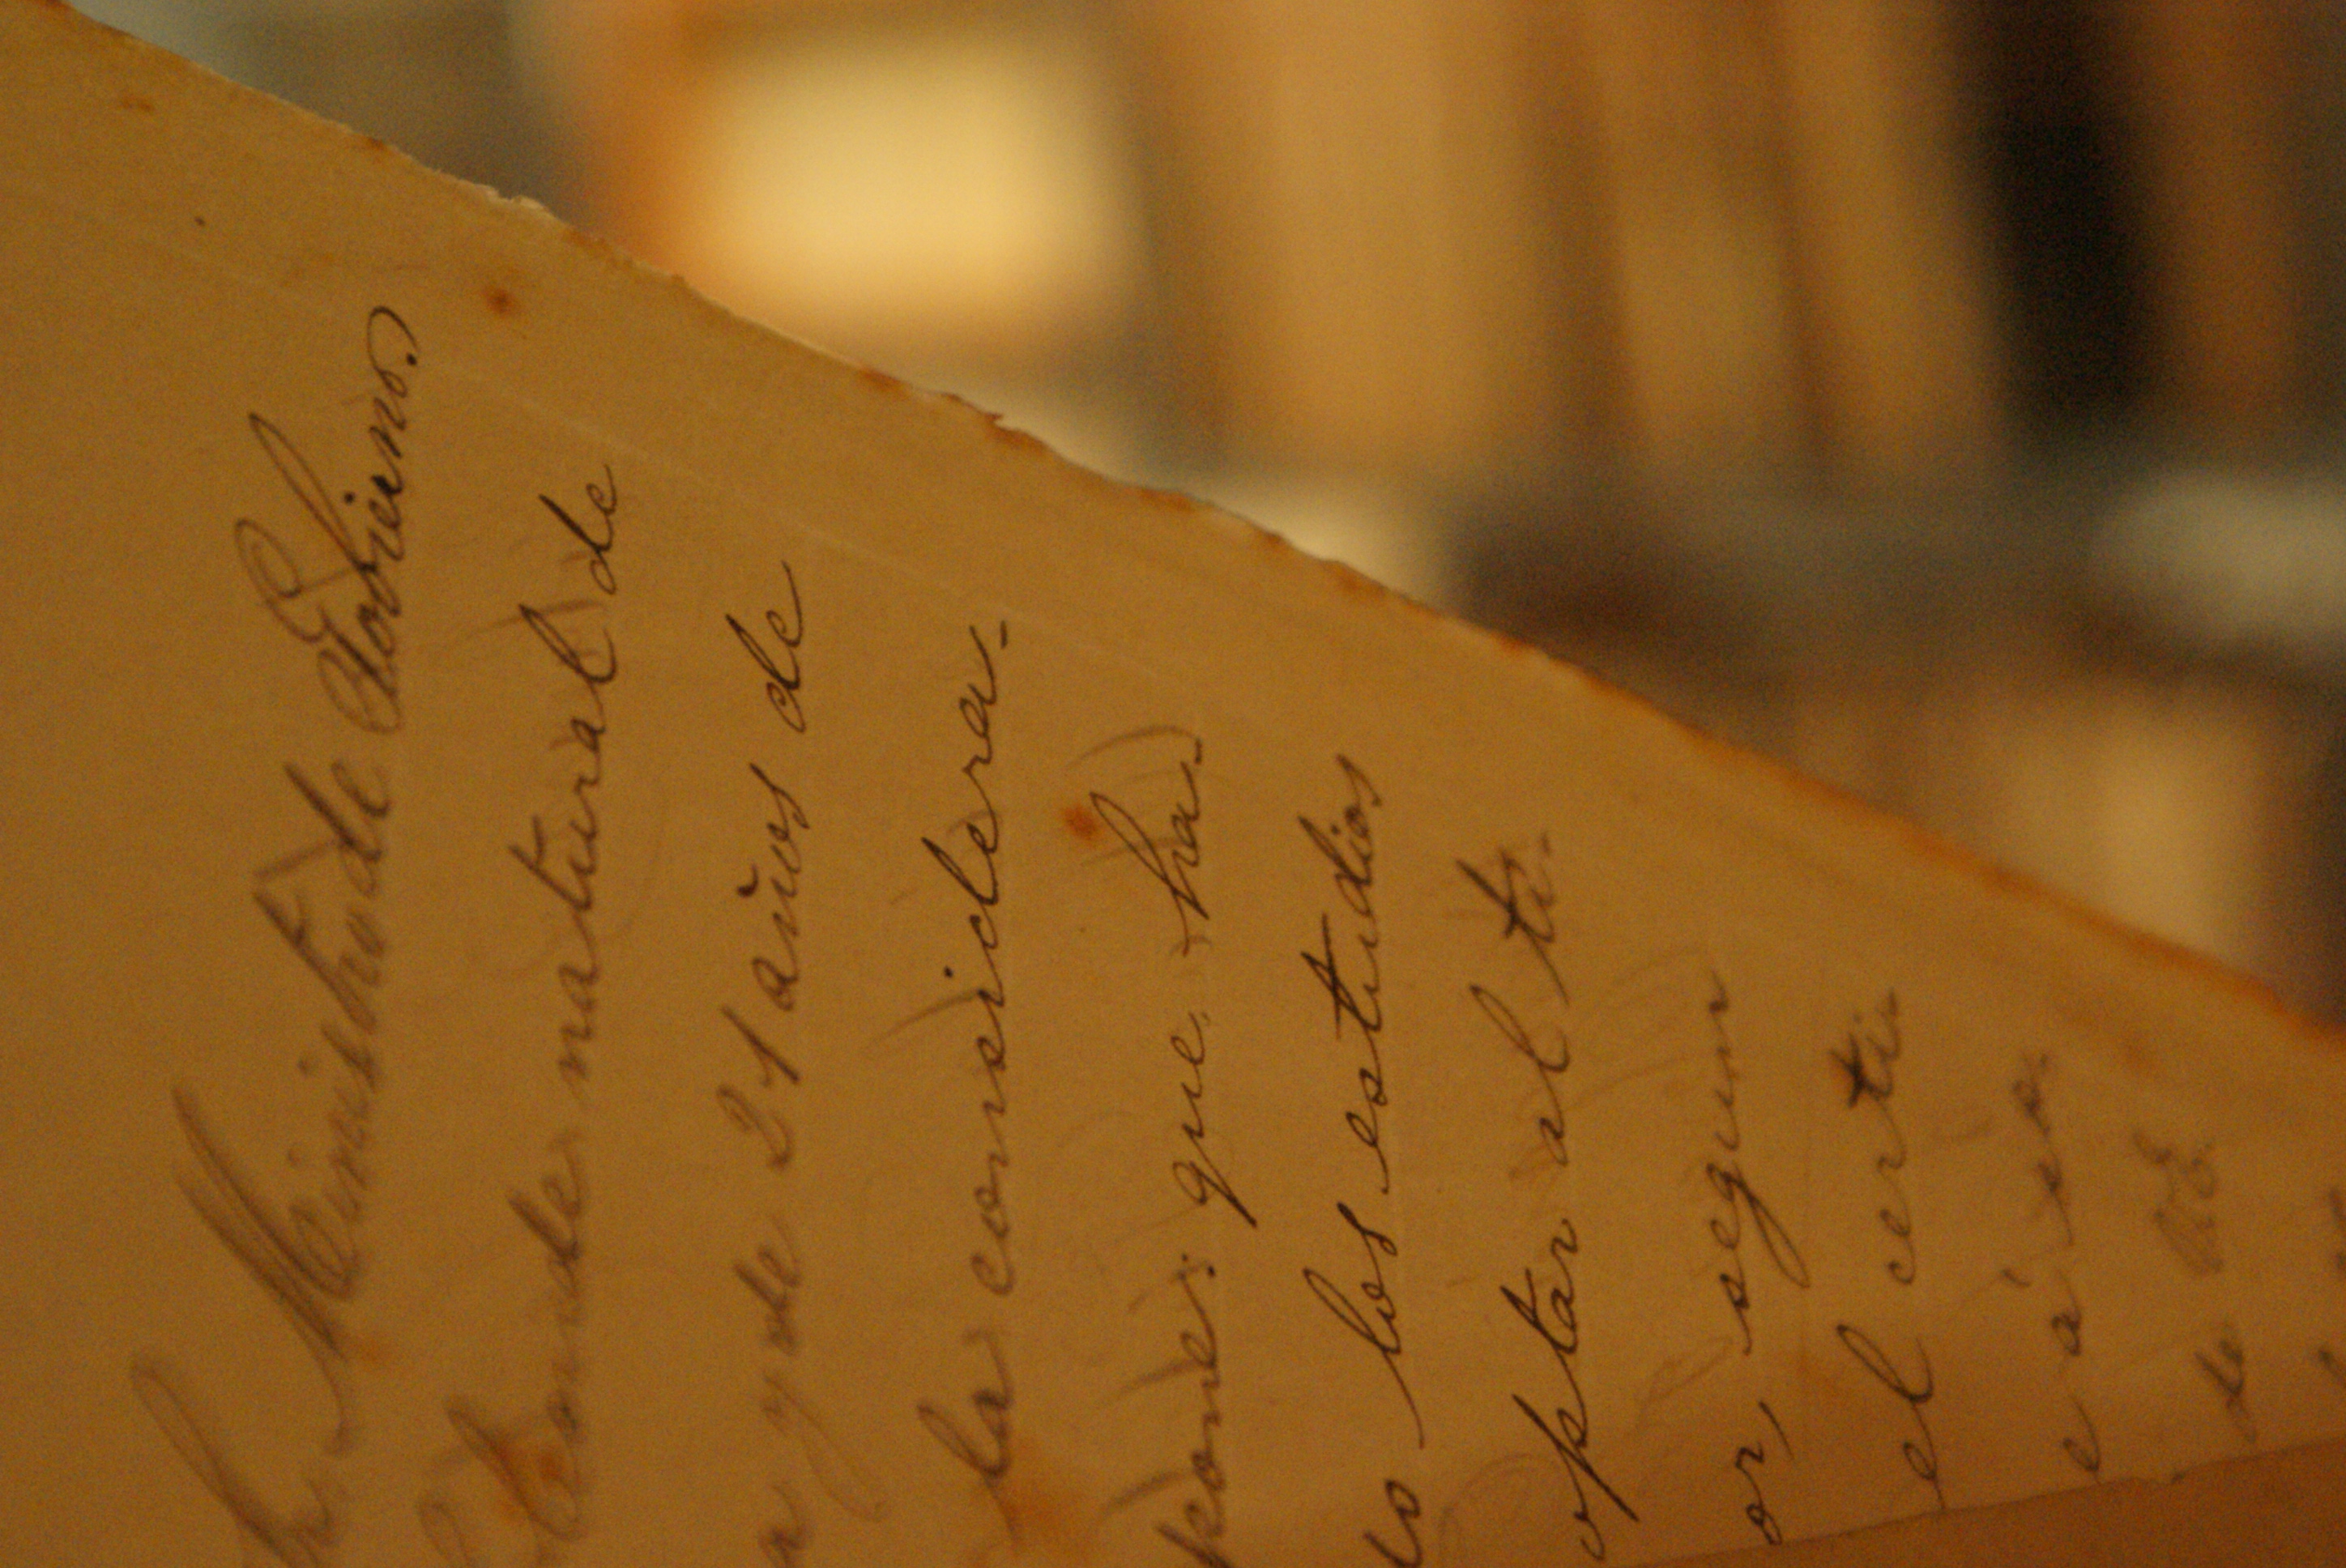 Ministro de Gobierno.
natural de
a y de 21 años de
la considera-
pone: que ha-
los estudios
optar al tí-
or, segun
el certi
e á
de